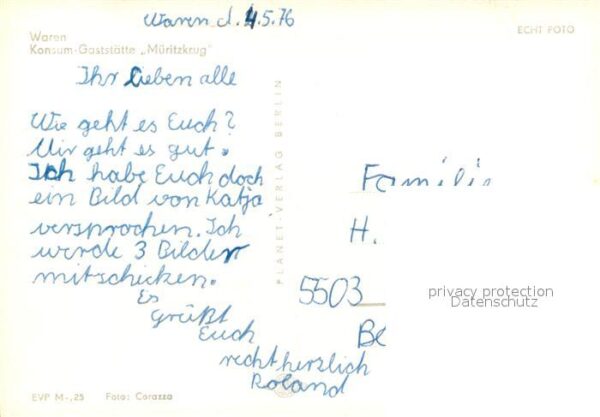 Waren d. 4.5.76
Waren
Konsum-Gaststätte „Müritzkrug"
ECHT FOTO
Ihr lieben alle
Wie geht es Euch?
Mir geht es gut.
Ich habe Euch doch
ein Bild von Katja
versprochen. Ich
werde 3 Bilder
mitschicken.
Es
grüßt
Euch
recht herzlich
Roland
PLANET-VERLAG BERLIN
Familie
H.
5503
Be
privacy protection
Datenschutz
EVP M-,25 Foto: Corazza